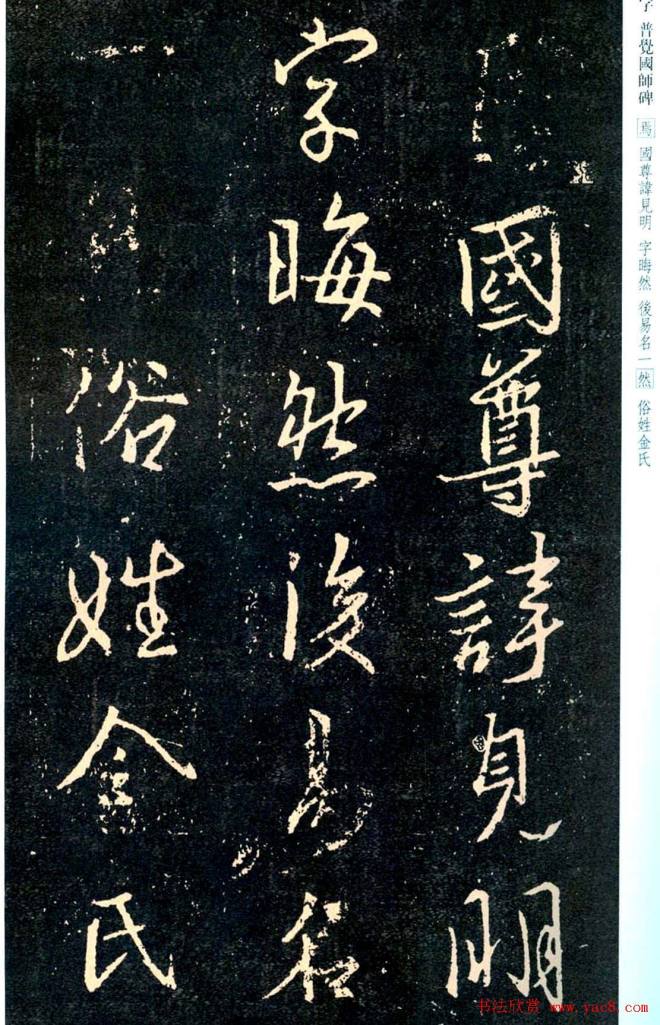 國尊諱見明
字晦然後易名
一
俗姓金氏
普覺國師碑 焉 國尊諱見明 字晦然 後易名一然 俗姓金氏
书法欣赏 www.yac8.com